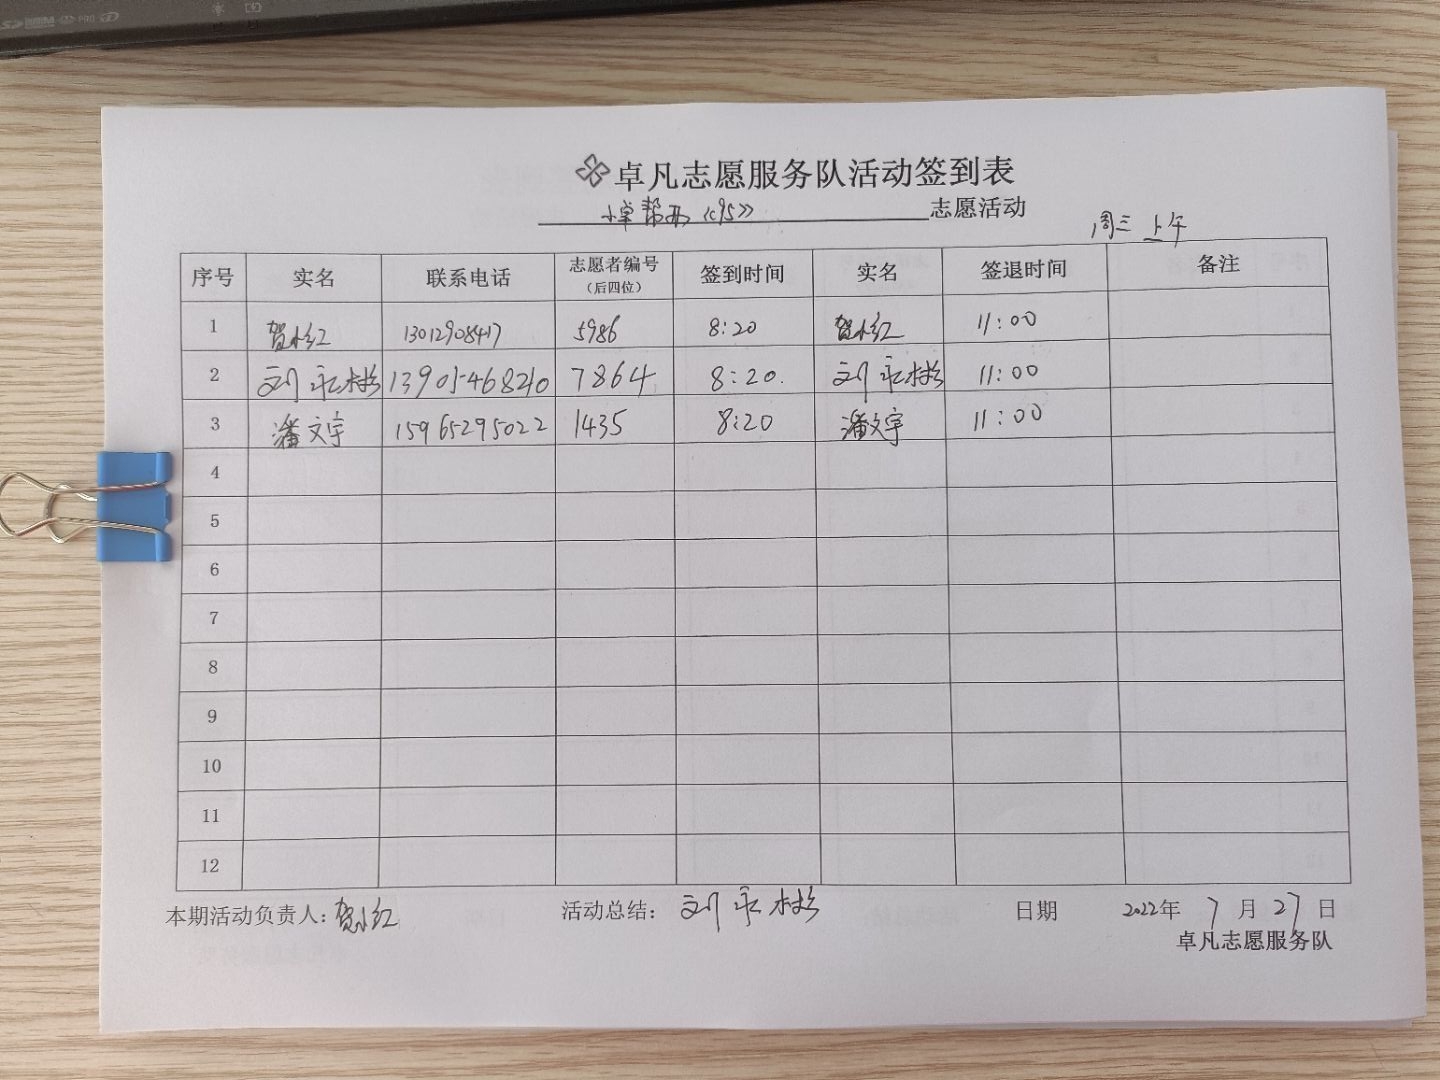 卓凡志愿服务队活动签到表
小卓帮办《95》 志愿活动
周三 上午
序号 实名 联系电话 志愿者编号（后四位） 签到时间 实名 签退时间 备注
1 贺小红 13012908417 5986 8:20 贺小红 11:00
2 刘永彬 7864 8:20. 刘永彬 11:00
3 潘文宇 15965295022 1435 8:20 潘文宇 11:00
4
5
6
7
8
9
10
11
12
本期活动负责人：贺小红 活动总结： 刘永彬 日期 2022年 7 月 27 日
卓凡志愿服务队